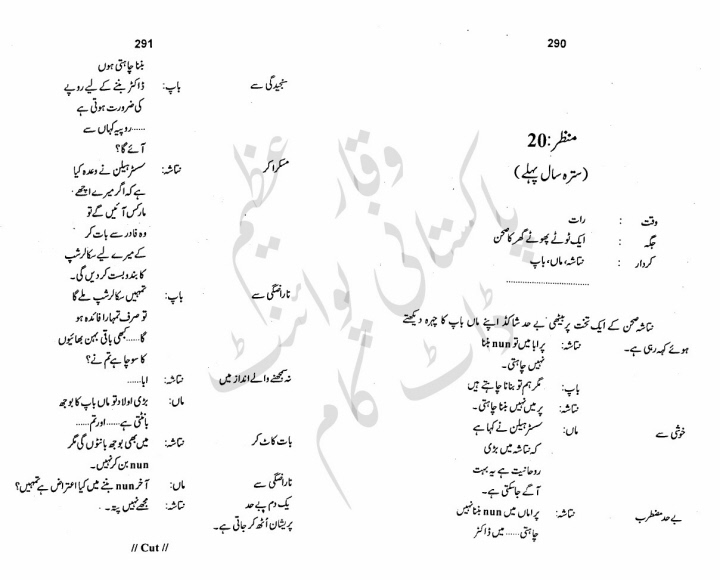 290
منظر:20
(سترہ سال پہلے)
وقت : رات
جگہ : ایک ٹوٹے پھوٹے گھر کا صحن
کردار : نتاشہ، ماں، باپ
نتاشہ صحن کے ایک تخت پر بیٹھی بے حد شاکڈ اپنے ماں باپ کا چہرہ دیکھتے
ہوئے کہہ رہی ہے۔
نتاشہ: پر ابا میں تو nun بننا
نہیں چاہتی۔
باپ: مگر ہم تو بنانا چاہتے ہیں
نتاشہ: پر میں نہیں بننا چاہتی۔
خوشی سے ماں: سسٹر ہیلن نے کہا ہے
کہ نتاشہ میں بڑی
روحانیت ہے یہ بہت
آگے جاسکتی ہے۔
بے حد مضطرب نتاشہ: پر اماں میں nun بننا نہیں
چاہتی...... میں ڈاکٹر
291
بننا چاہتی ہوں
سنجیدگی سے باپ: ڈاکٹر بننے کے لیے روپے
کی ضرورت ہوتی ہے
......روپیہ کہاں سے
آئے گا؟
مسکرا کر نتاشہ: سسٹر ہیلن نے وعدہ کیا
ہے کہ اگر میرے اچھے
مارکس آئیں گے تو
وہ فادر سے بات کر
کے میرے لیے سکالرشپ
کا بندوبست کر دیں گی۔
ناراضگی سے باپ: تمہیں سکالرشپ ملے گا
تو صرف تمہارا فائدہ ہو
گا......کبھی باقی بہن بھائیوں
کا سوچا ہے تم نے؟
نہ سمجھنے والے انداز میں نتاشہ: ابا......
ماں: بڑی اولاد تو ماں باپ کا بوجھ
بانٹتی ہے......اور تم......
بات کاٹ کر نتاشہ: میں بھی بوجھ بانٹوں گی مگر
nun بن کر نہیں۔
ناراضگی سے ماں: آخر nun بننے میں کیا اعتراض ہے تمہیں؟
یک دم بے حد نتاشہ: مجھے نہیں پتہ۔
پریشان اُٹھ کر جاتی ہے۔
// Cut //
وقار عظیم
پاکستانی پوائنٹ
ڈاٹ کام